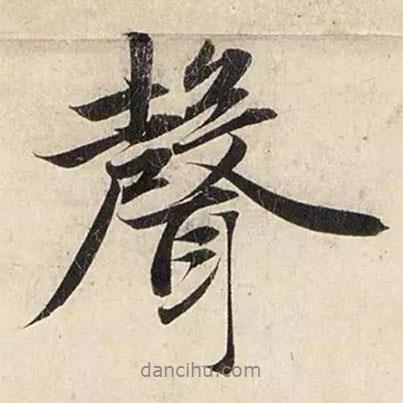 聲
dancihu.com